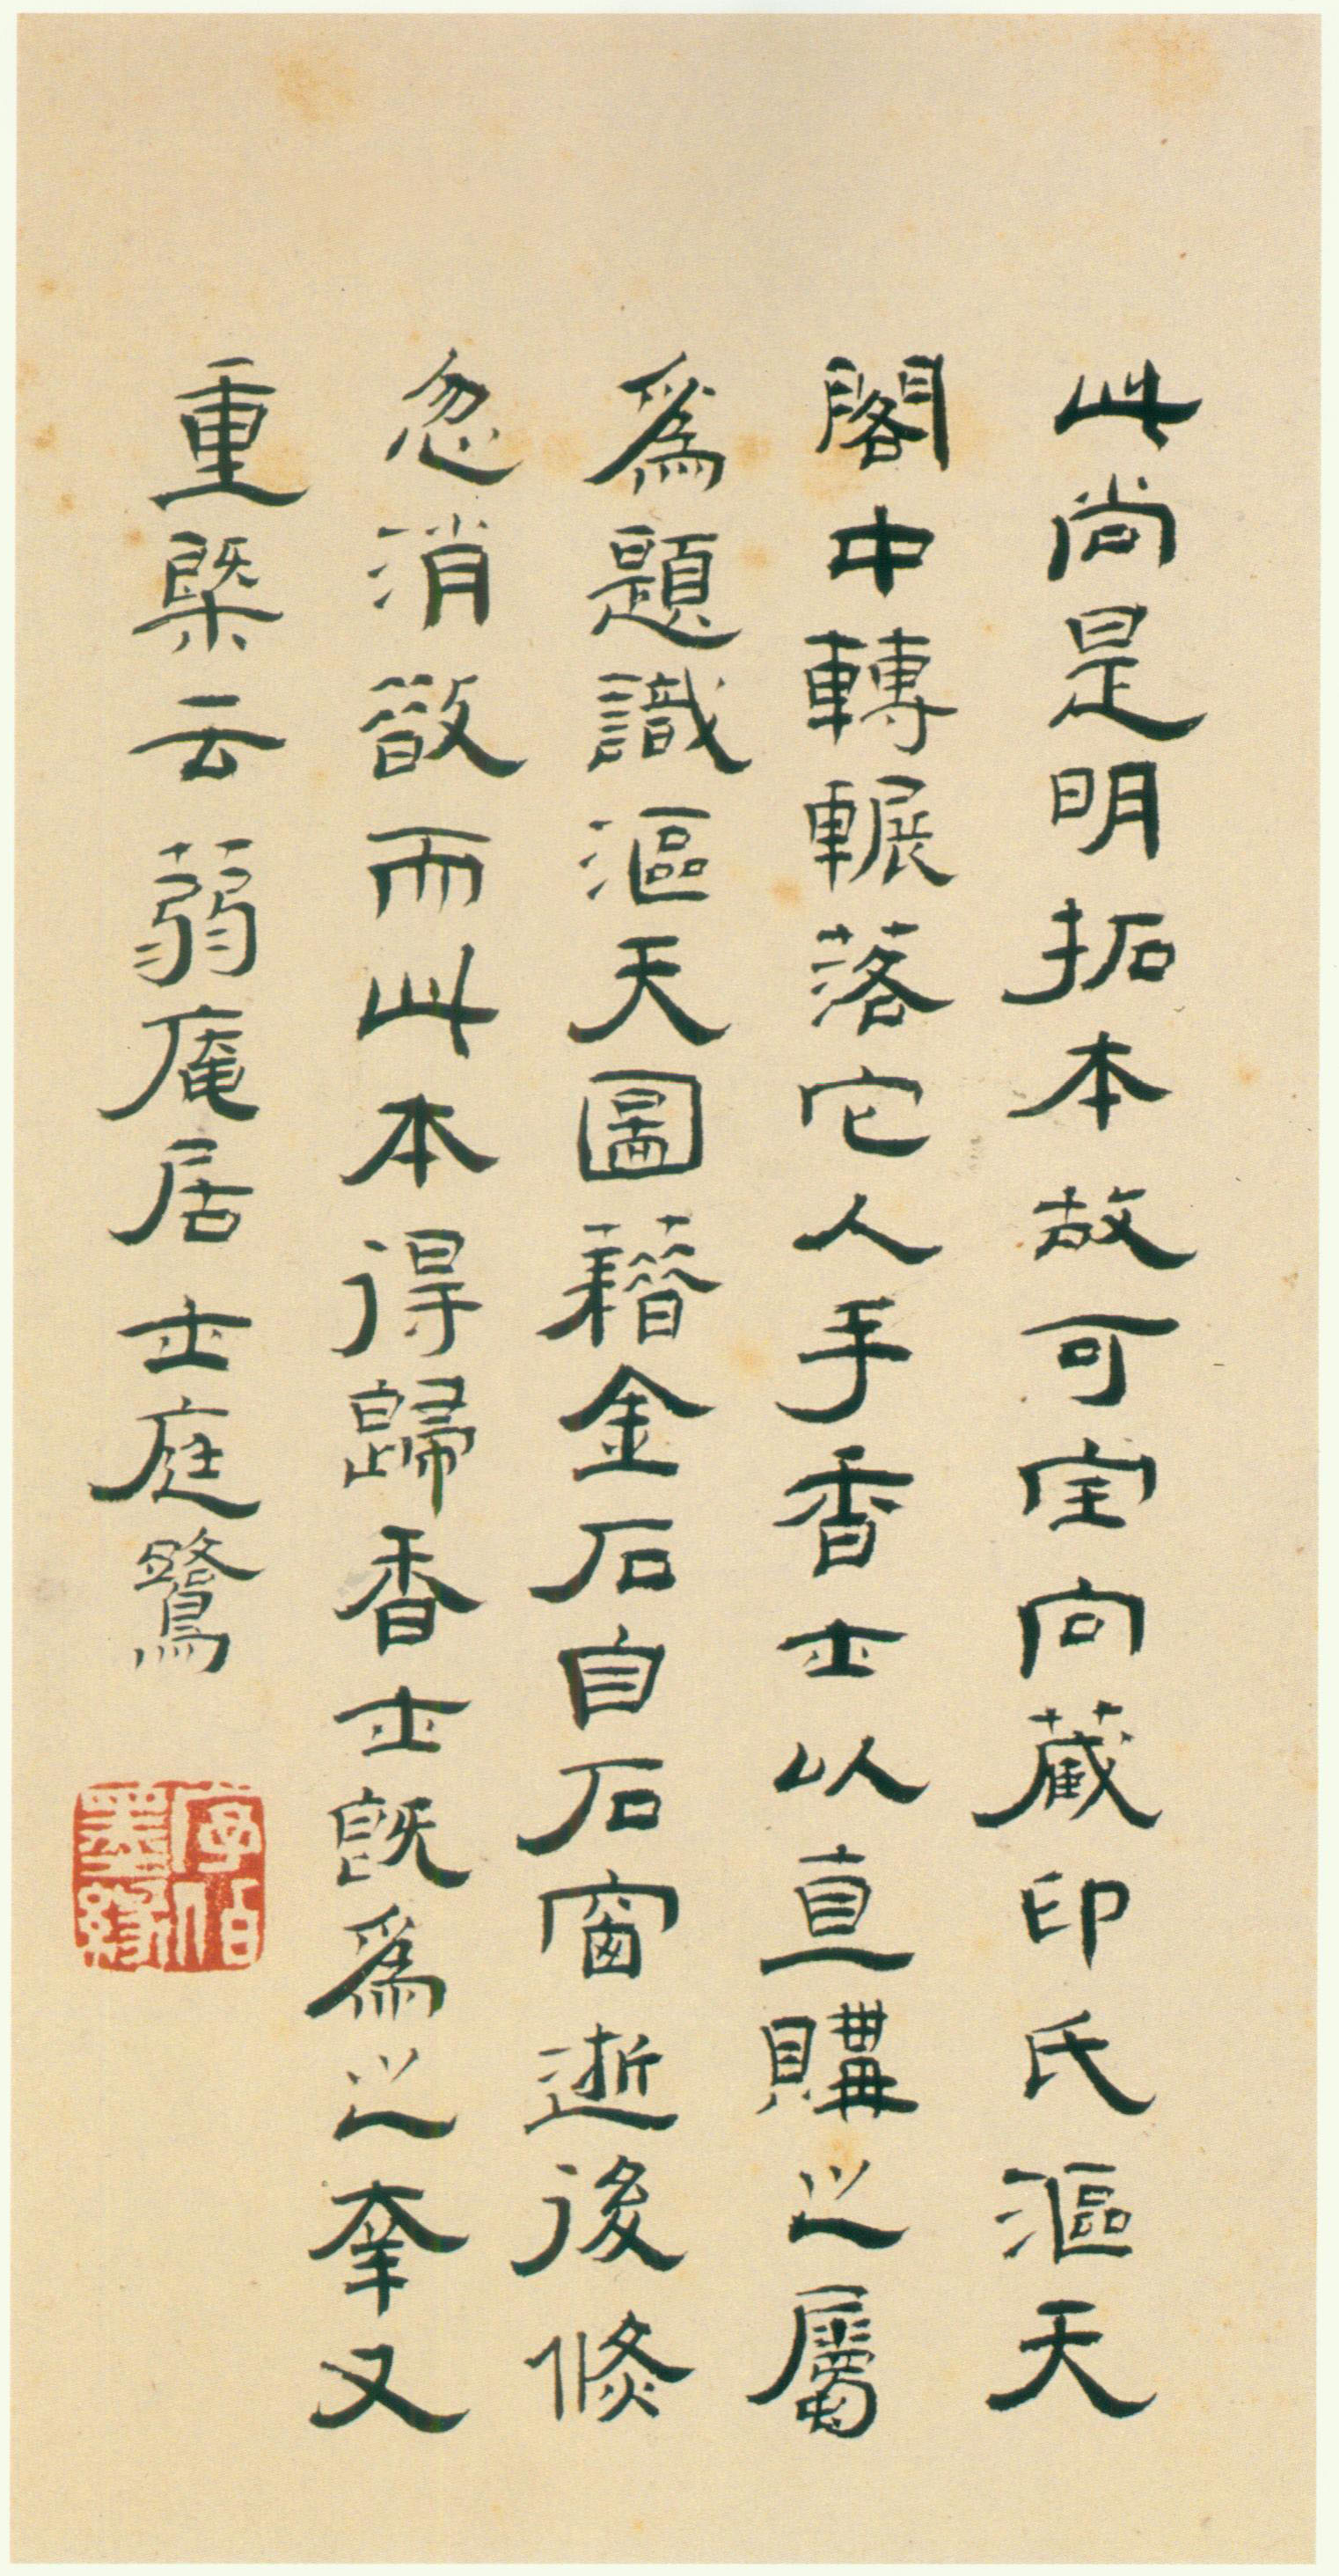 此尚是明拓本故可宝向藏印氏漚天
閣中轉輾落它人手香士以直購之屬
爲題識漚天圖藉金石自石窗逝後倏
忽消散而此本得歸香士既爲之幸又
重槩云蒻庵居士庭鷺